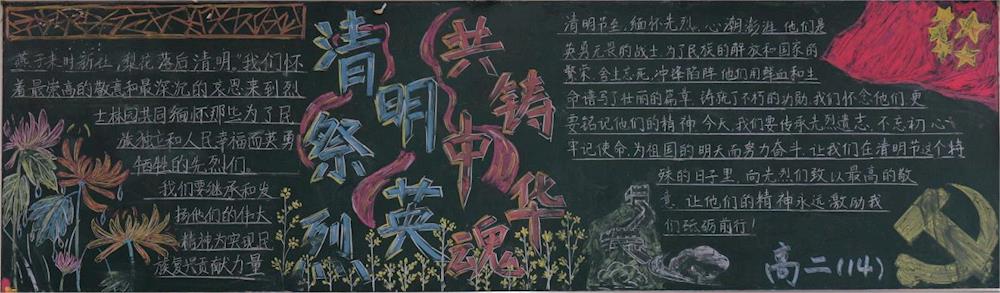 燕子来时新社，梨花落后清明"我们怀
着最崇高的敬意和最深沉的哀思来到烈
士林园共同缅怀那些为了民
族独立和人民幸福而英勇
牺牲的先烈们。
我们要继承和发
扬他们的伟大
精神为实现民
族复兴贡献力量
清明祭英烈
共铸中华魂
清明节至，缅怀先烈，心潮澎湃，他们是
英勇无畏的战士，为了民族的解放和国家的
繁荣，舍生忘死，冲锋陷阵，他们用鲜血和生
命谱写了壮丽的篇章，铸就了不朽的功勋，我们怀念他们，更
要铭记他们的精神，今天，我们要传承先烈遗志，不忘初心
牢记使命，为祖国的明天而努力奋斗，让我们在清明节这个特
殊的日子里，向先烈们致以最高的敬
意，让他们的精神永远激励我
们砥砺前行！
高二（14）